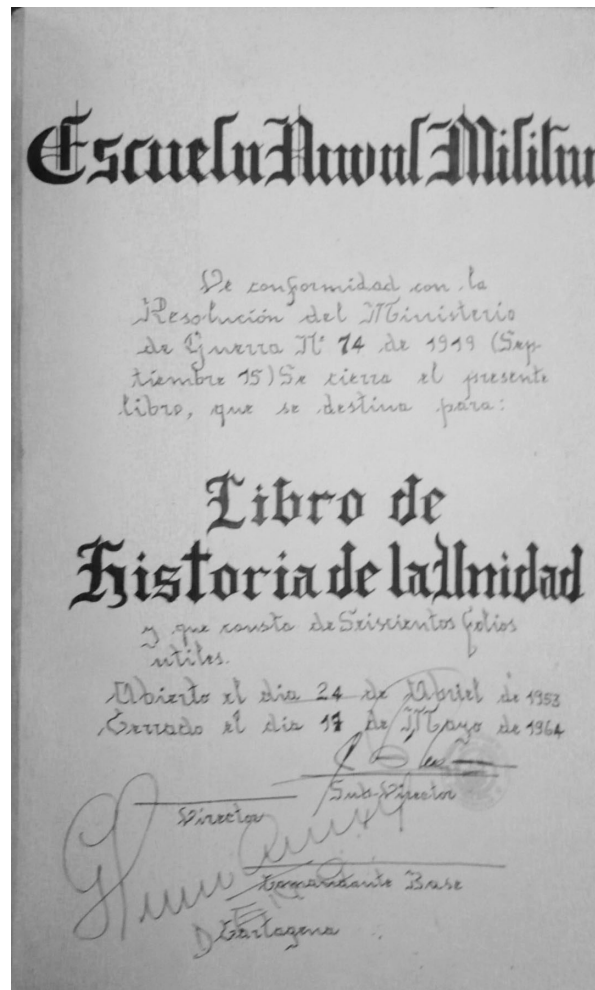 Escuela Naval Militar
De conformidad con la
Resolución del Ministerio
de Guerra Nº 74 de 1919 (Sep-
tiembre 15) Se cierra el presente
libro, que se destina para:
Libro de
Historia de la Unidad
y que consta de Seiscientos folios
utiles.
Abierto el dia 24 de Abriel de 1953
Cerrado el dia 17 de Mayo de 1964
Sub-Director
Director
Comandante Base
Cartagena